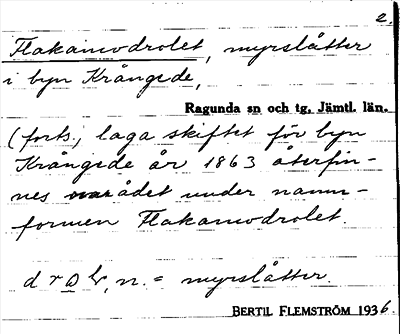 2.
Flakamodrolet, myrslåtter
i byn Krångede,
Ragunda sn och tg, Jämtl. län.
(forts., laga skiftet för byn
Krångede år 1863 återfin-
nes området under namn-
formen Flakamodrolet.
n. = myrslåtter.
BERTIL FLEMSTRÖM 1936.